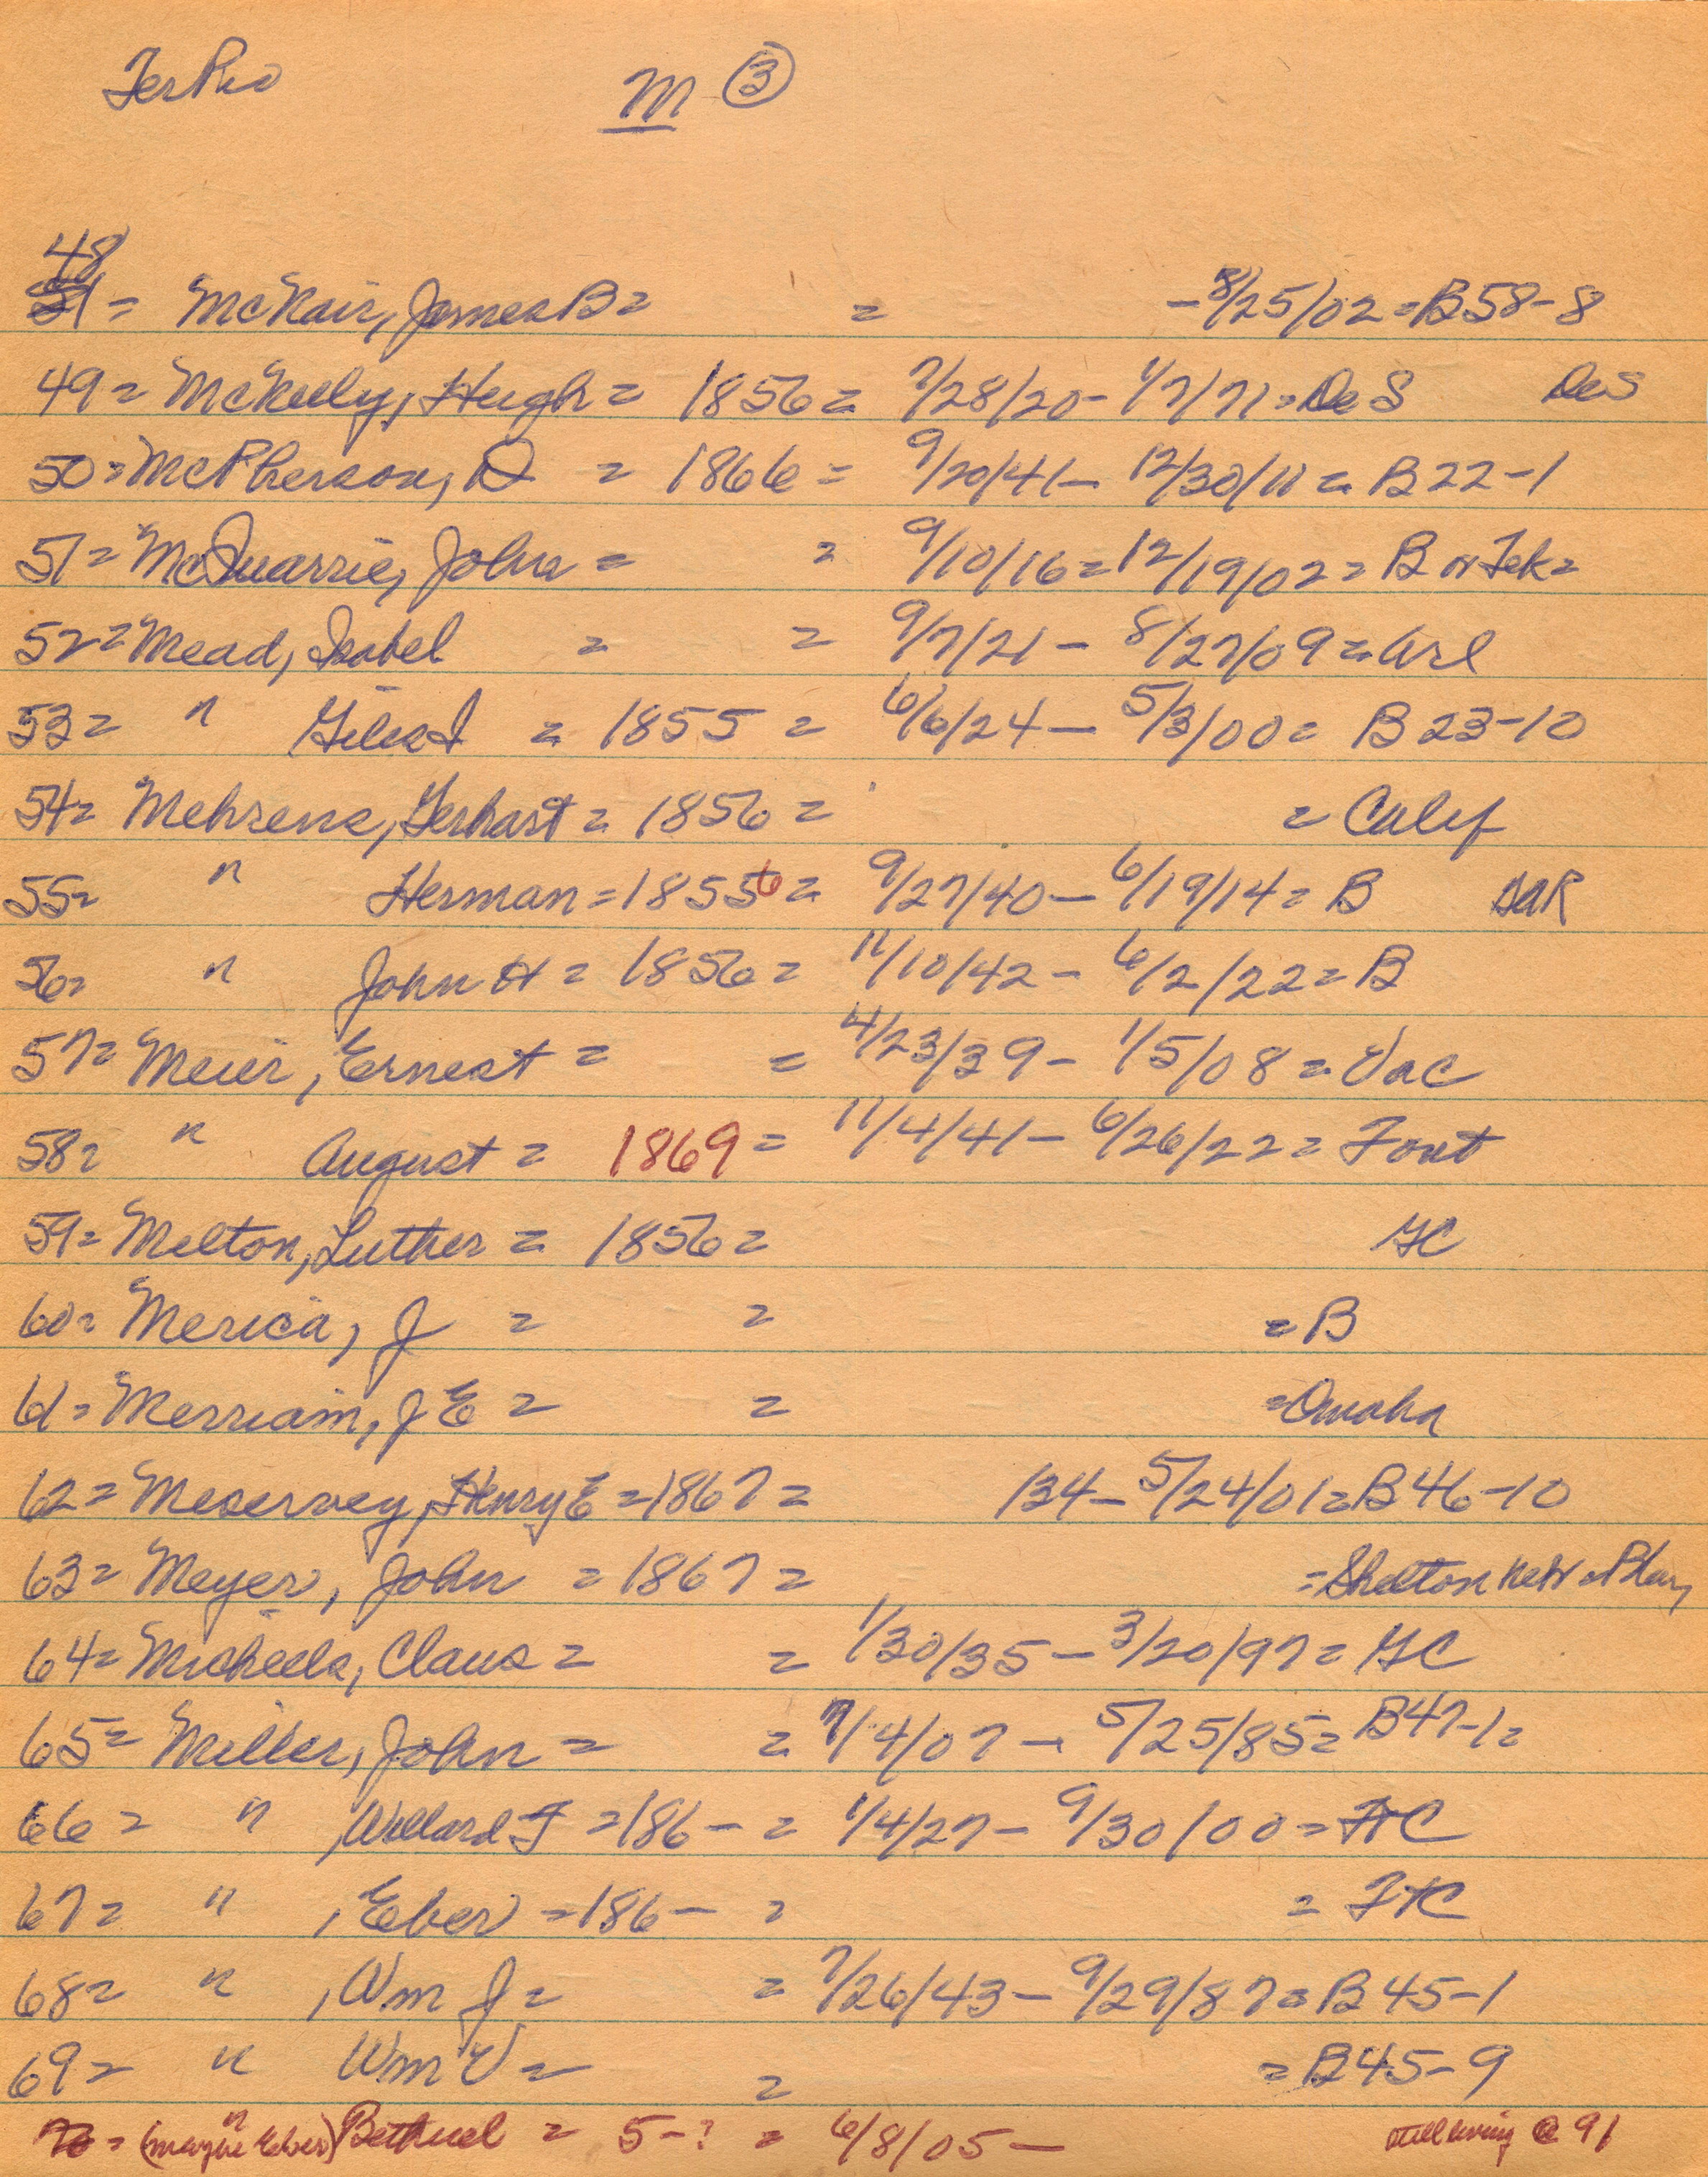 TerPio M ③
48
51 = McNair, James B = = - 8/25/02 = B58-8
49 = McNeely, Hugh = 1856 = 7/28/20 - 1/7/71 = De S DeS
50 = McPherson, D = 1866 = 9/20/41 - 12/30/11 = B22-1
51 = McQuarrie, John = = 9/10/16 = 12/19/02 = B or Tek =
52 = Mead, Isabel = = 9/7/21 - 8/27/09 = Arl
53 = " Giles I = 1855 = 6/6/24 - 5/3/00 = B 23-10
54 = Mehrens, Gerhart = 1856 = = Calif
55 = " Herman = 18556 = 9/27/40 - 6/19/14 = B DAR
56 = " John H = 1856 = 11/10/42 - 6/2/22 = B
57 = Meier, Ernest = = 4/23/39 - 1/5/08 = Vac
58 = " August = 1869 = 11/4/41 - 6/26/22 = Font
59 = Melton, Luther = 1856 = GC
60 = Merica, J = = = B
61 = Merriam, J E = = = Omaha
62 = Meservey, Henry E = 1867 = /34 - 5/24/01 = B46-10
63 = Meyer, John = 1867 = = Shelton
64 = Micheels, Claus = = 1/30/35 - 3/20/97 = GC
65 = Miller, John = = 7/4/07 - 5/25/85 = B47-1 =
66 = " , Willard F = 186- = 1/4/27 - 9/30/00 = FtC
67 = " , Eber = 186- = = FtC
68 = " , Wm J = = 7/26/43 - 9/29/87 = B45-1
69 = " Wm V = = = B45-9
70 = " (maybe Eber) Bethuel = 5-? = 6/8/05 - still living @ 91